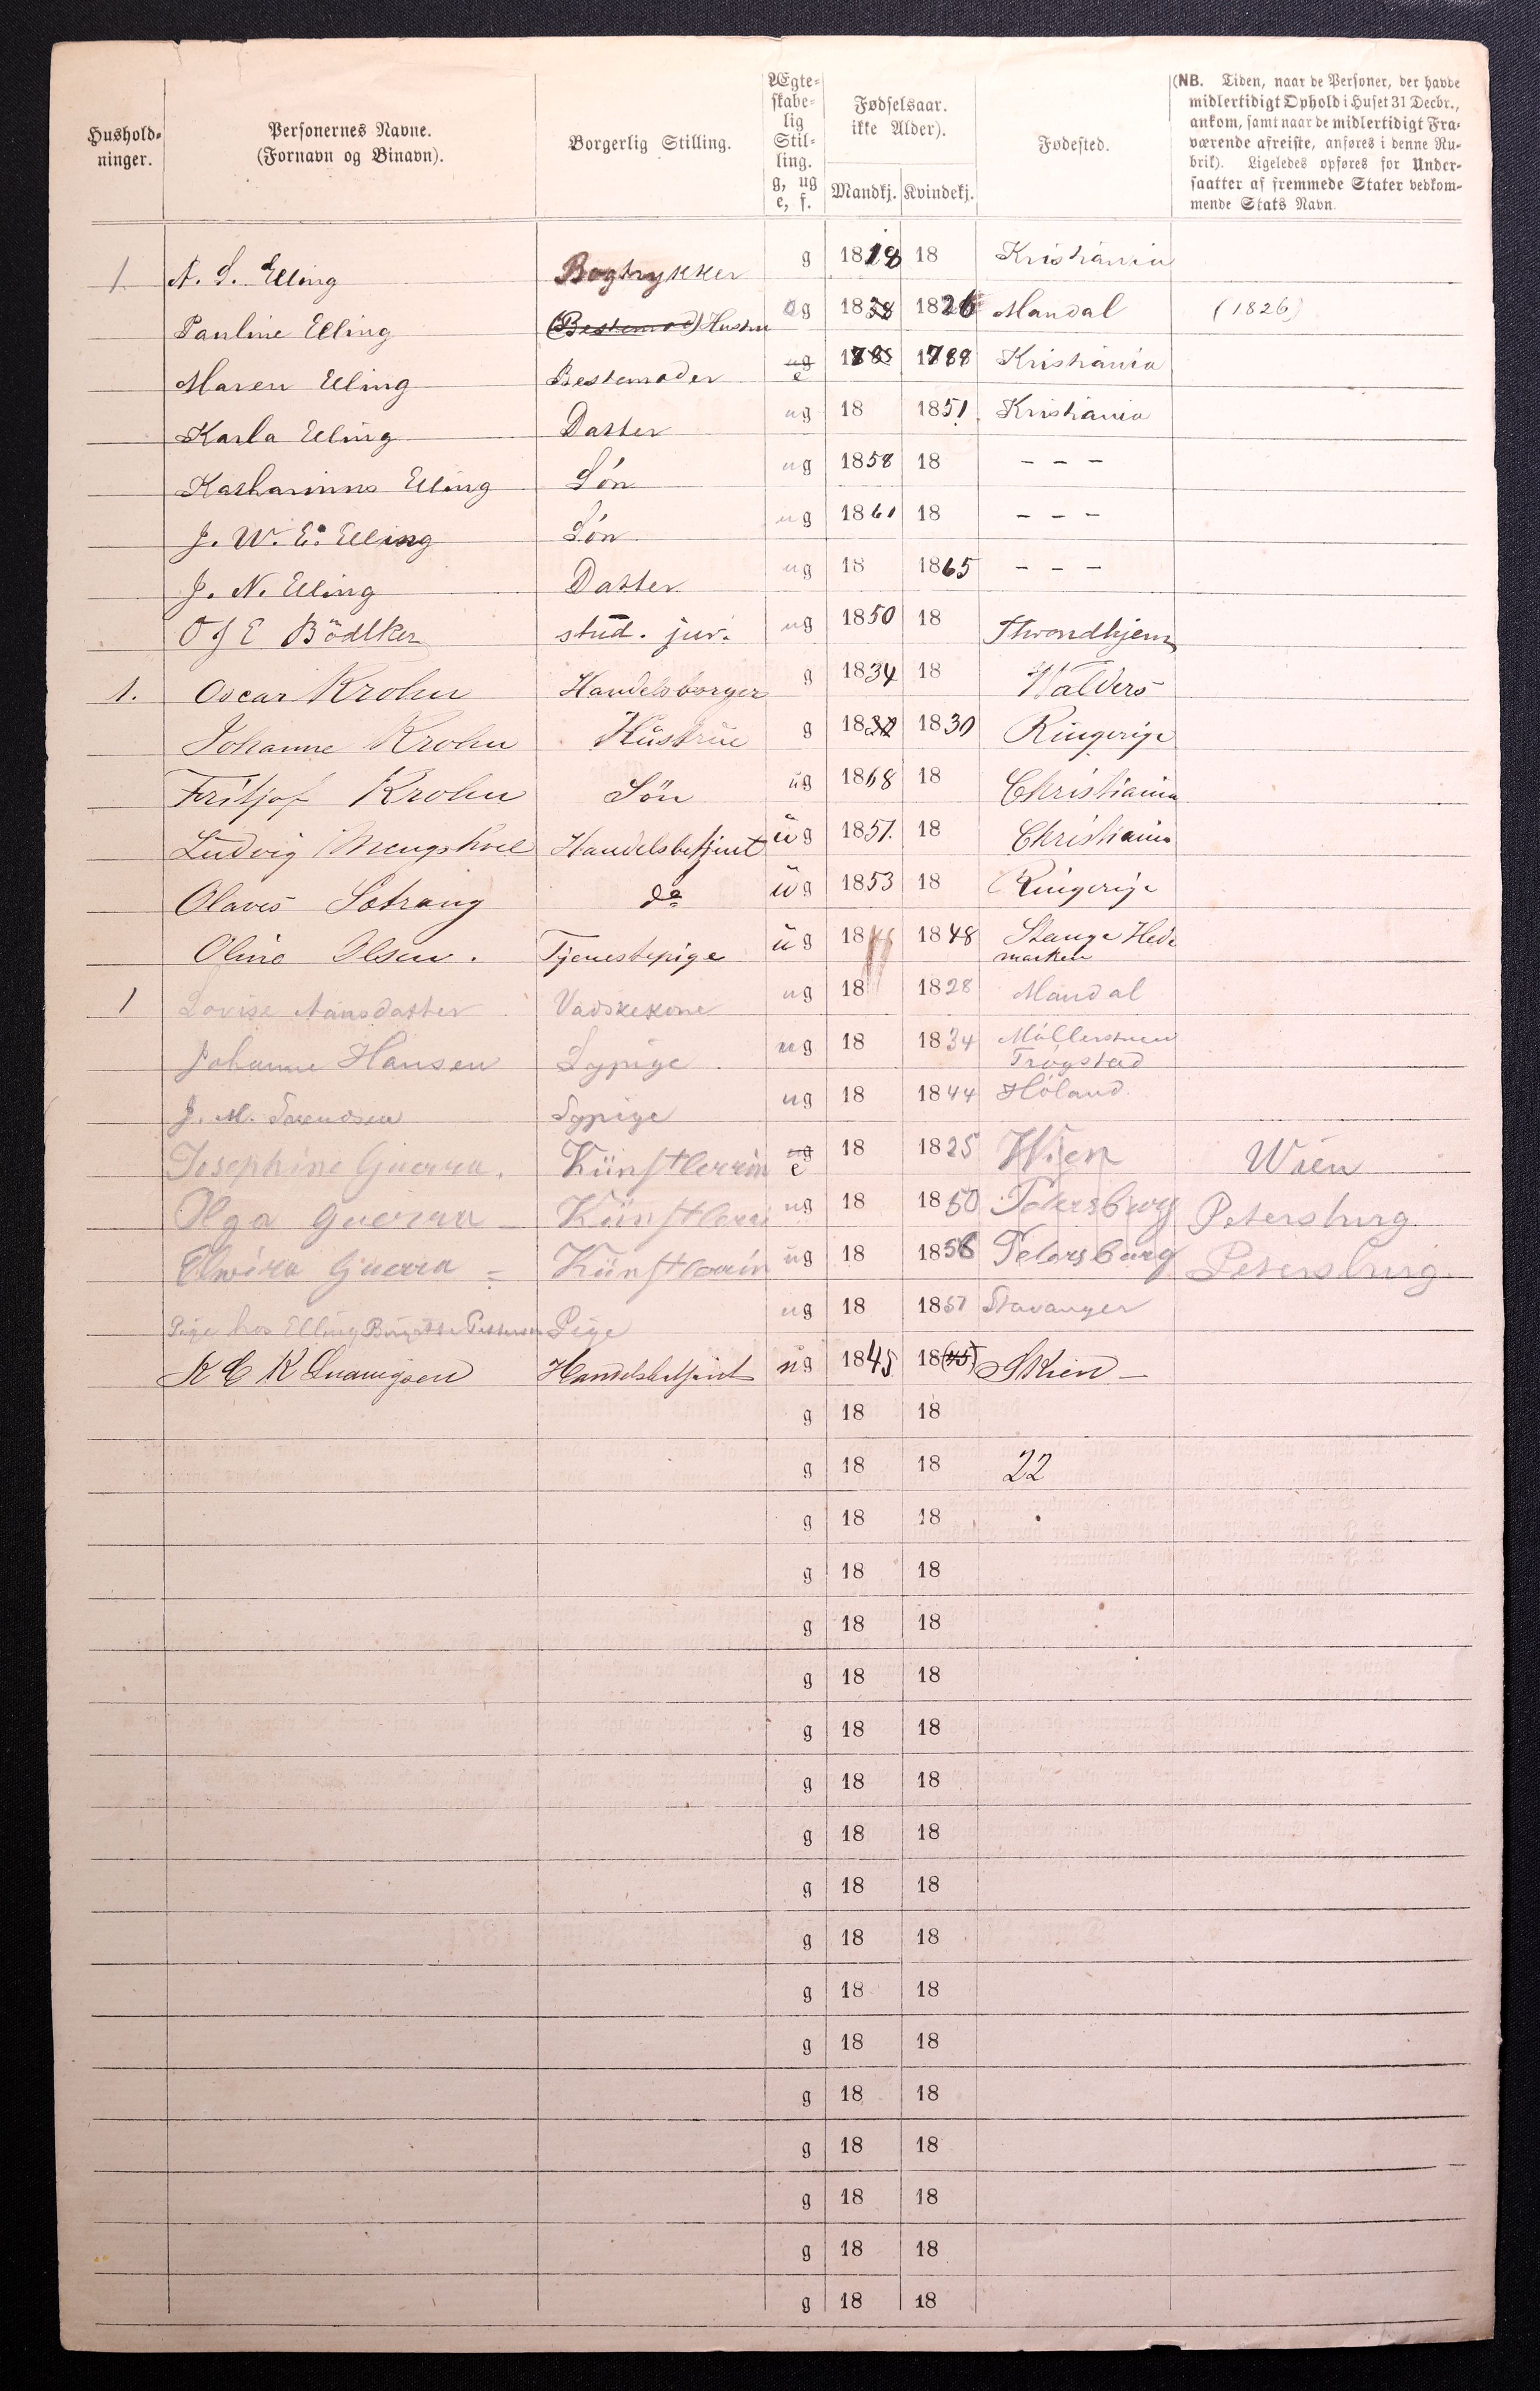 Hushold-
ninger.
Personernes Navne.
(Fornavn og Binavn).
Borgerlig Stilling.
Ægte-
skabe-
lig
Stil-
ling.
g, ug
e, f.
Fødselsaar.
ikke Alder).
Mandkj. Kvindekj.
Fødested.
(NB. Tiden, naar de Personer, der havde
midlertidigt Ophold i Huset 31 Decbr.,
ankom, samt naar de midlertidigt Fra-
værende afreiste, anføres i denne Ru-
brik). Ligeledes opføres for Under-
saatter af fremmede Stater vedkom-
mende Stats Navn.
1 N. S. Elling Bogtrykker g 1818 18 Kristiania
Pauline Elling (Bestemod) Hustru g 1838 1826 Mandal (1826)
Maren Elling Bestemoder ug e 1788 1788 Kristiania
Karla Elling Datter ug 18 1851. Kristiania
Katharinus Elling Søn ug 1858 18 - - -
J. W. E. Elling Søn ug 1861 18 - - -
J. N. Elling Datter ug 18 1865 - - -
O J E Bödtker stud. jur. ug 1850 18 Throndhjem
1. Oscar Krohn Handelsborger g 1834 18 Walders
Johanne Krohn Hustrue g 1830 1830 Ringerige
Fritjof Krohn Sön ug 1868 18 Christiania
Ludvig Mengshoel Handelsbetjent ug 1851. 18 Christiania
Olaves Sotrang do ug 1853 18 Ringerige
Oline Olsen. Tjenestepige ug 1848 1848 Stange Hede
marken
1 Lovise Aansdatter Vadskekone ug 18 1828 Mandal
Johanne Hansen Sypige ug 18 1834 Möllerstuen
Trøgstad
J. M. Svendsen Sypige ug 18 1844 Høland.
Josephine Guerra. Künstlerrin ug e 18 1825 Wien Wien
Olga Guerra - Künstlerri ug 18 1850 Petersburg Petersburg.
Elwira Guerra = Künstlerrin ug 18 1856 Petersburg Petersburg.
Pige hos Elling Birgitte Pettersen Pige ug 18 1857 Stavanger
K C K Ludvigsen Handelsbetjent ug 1845 18(45) Skien -
g 18 18
g 18 18 22
g 18 18
g 18 18
g 18 18
g 18 18
g 18 18
g 18 18
g 18 18
g 18 18
g 18 18
g 18 18
g 18 18
g 18 18
g 18 18
g 18 18
g 18 18
g 18 18